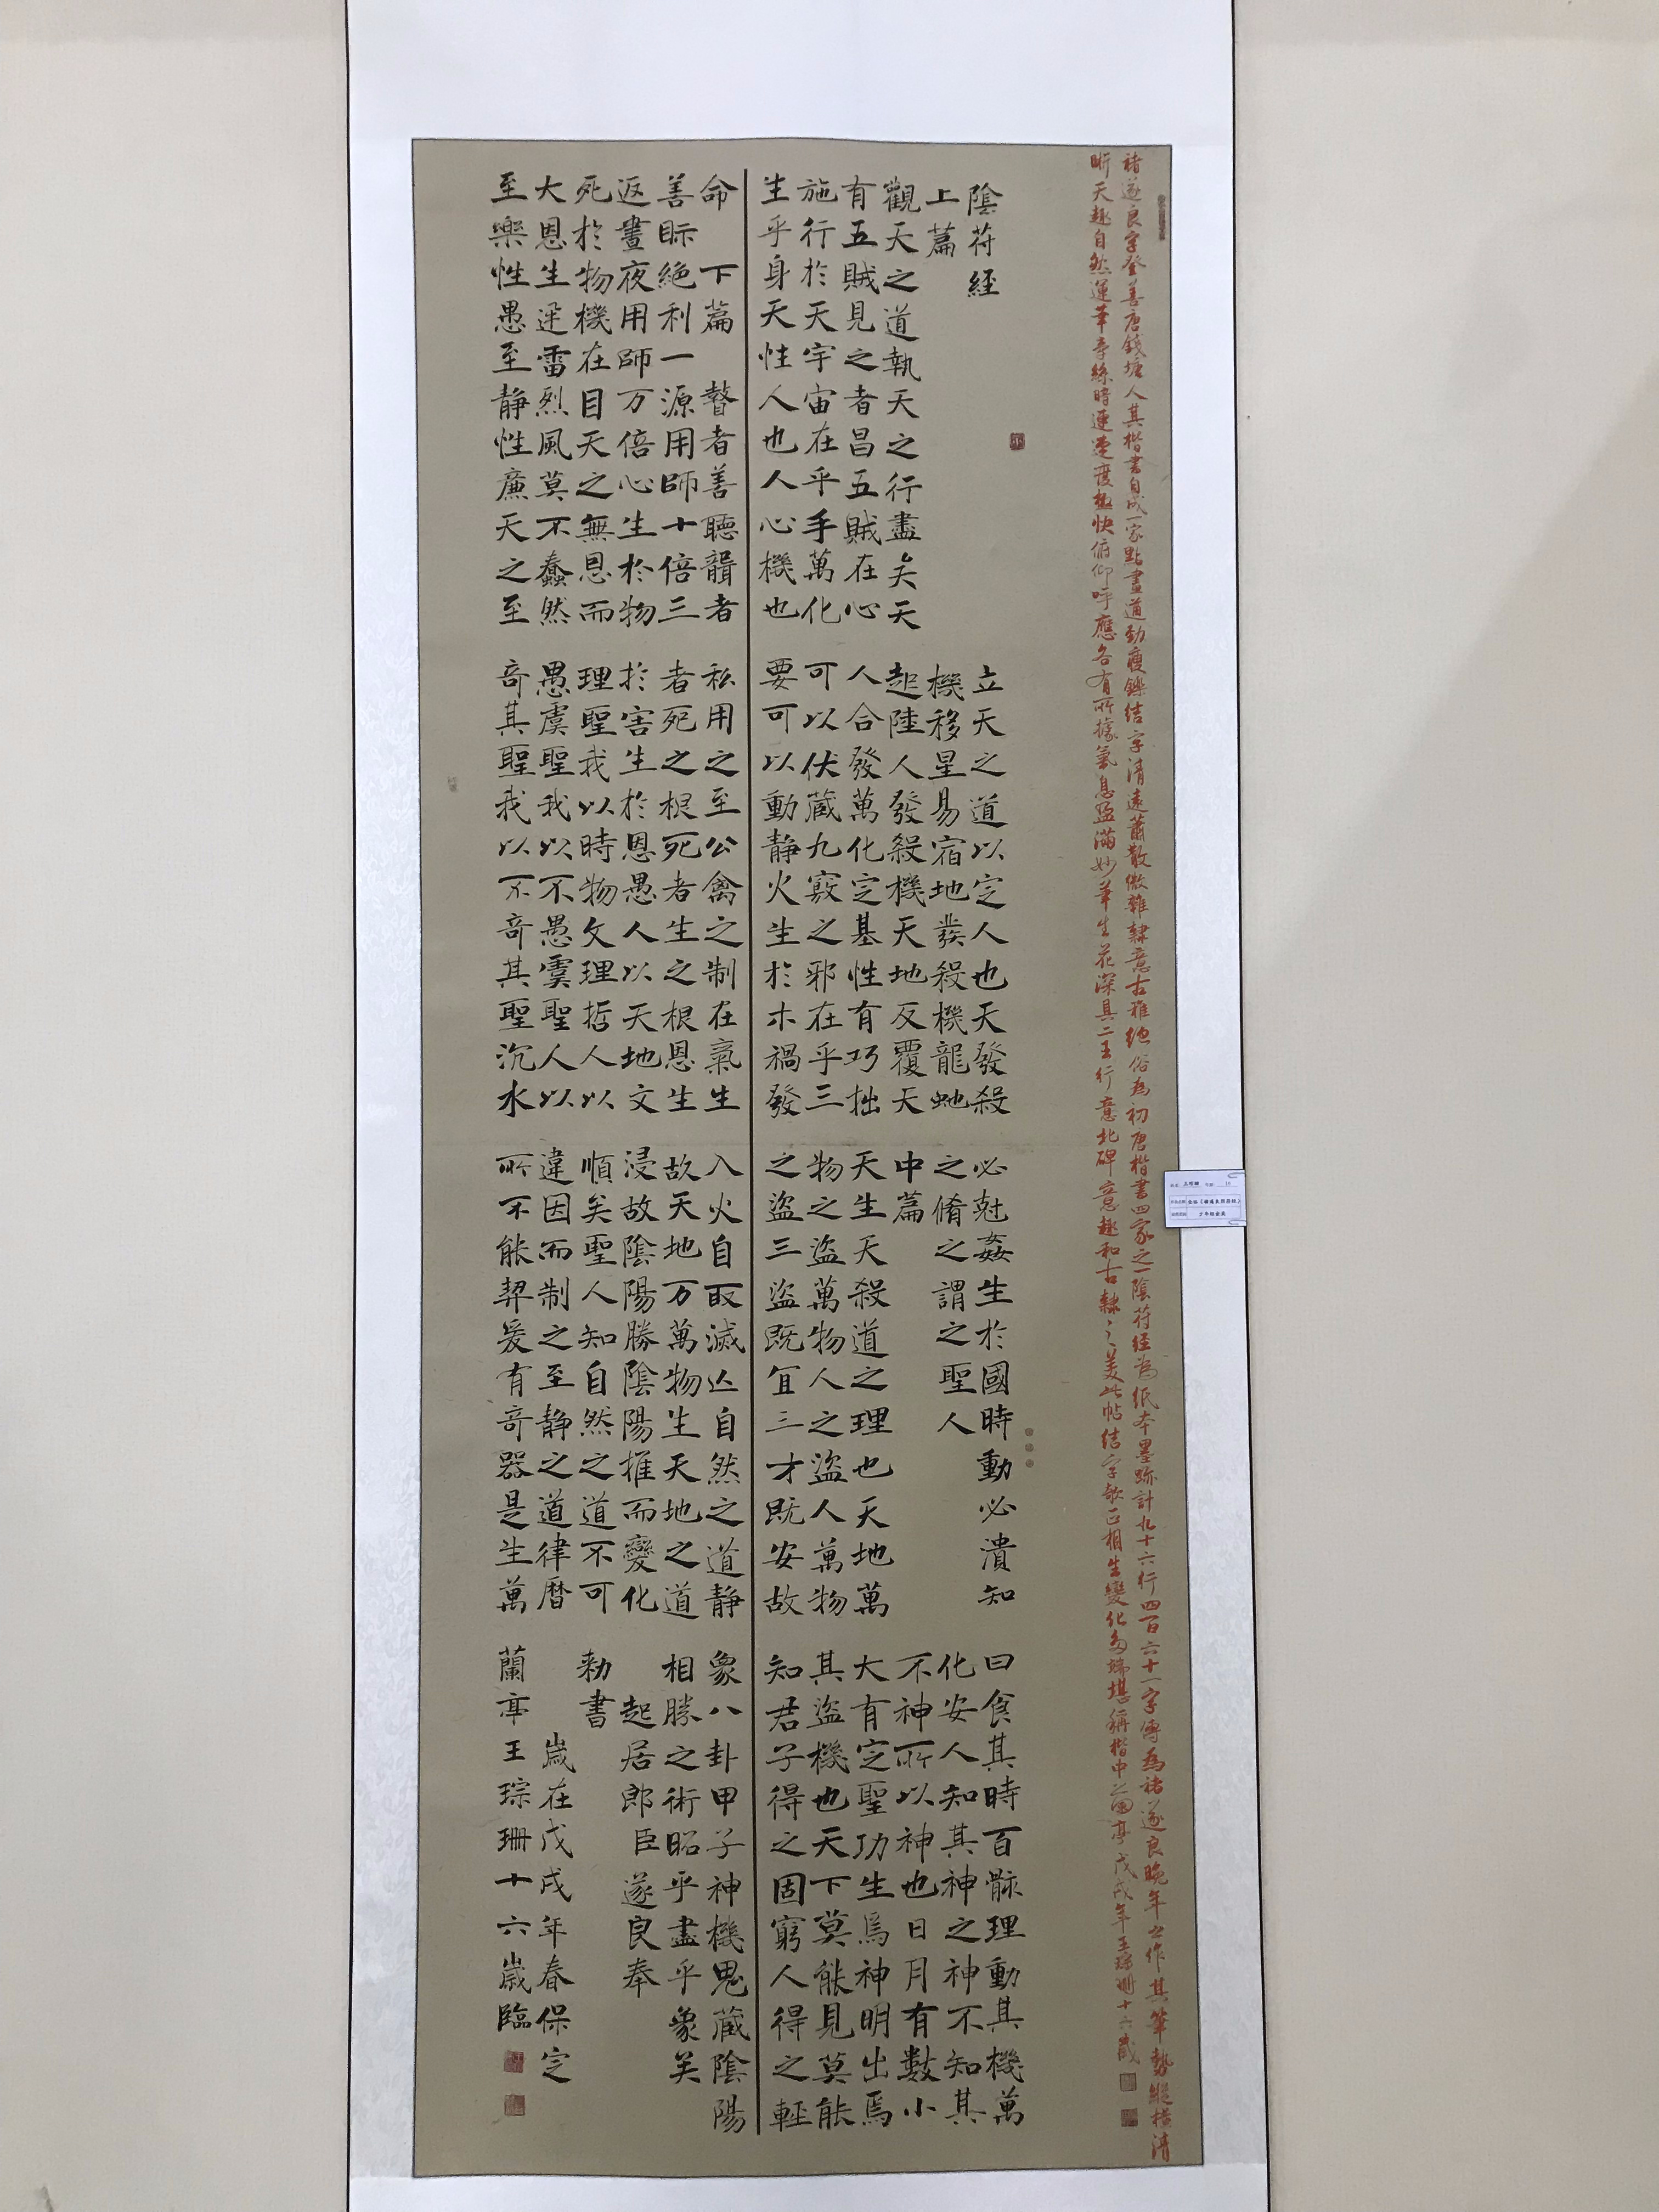 褚遂良字登善唐錢塘人其楷書自成一家點畫遒勁瘦鍊結字清遠蕭散微雜隸意古雅絕俗為初唐楷書四家之一陰符經為紙本墨跡計九十六行四百六十一字傳為褚遂良晚年之作其筆勢縱橫清
晰天趣自然運筆牽絲時運速度極快俯仰呼應各有所據氣息盈滿妙筆生花深具二王行意北碑意趣和古隸之美此帖結字欹正相生變化多端堪稱楷中蘭亭戊戌年王琮珊十六歲
陰符經
上篇
觀天之道執天之行盡矣天
有五賊見之者昌五賊在心
施行於天宇宙在乎手萬化
生乎身天性人也人心機也
立天之道以定人也天發殺
機移星易宿地發殺機龍虵
起陸人發殺機天地反覆天
人合發萬化定基性有巧拙
可以伏藏九竅之邪在乎三
要可以動静火生於木禍發
必尅姦生於國時動必潰知
之脩之謂之聖人
中篇
天生天殺道之理也天地萬
物之盜萬物人之盜人萬物
之盜三盜既宜三才既安故
曰食其時百骸理動其機萬
化安人知其神之神不知其
不神所以神也日月有數小
大有定聖功生焉神明出焉
其盜機也天下莫能見莫能
知君子得之固窮人得之輕
命 下篇 瞽者善聽聾者
善眎絕利一源用師十倍三
返晝夜用師万倍心生於物
死於物機在目天之無恩而
大恩生迅雷烈風莫不蠢然
至樂性愚至静性廉天之至
私用之至公禽之制在氣生
者死之根死者生之根恩生
於害生於恩愚人以天地文
理聖我以時物文理哲人以
愚虞聖我以不愚虞聖人以
奇其聖我以不奇其聖沉水
入火自取滅亡自然之道静
故天地万萬物生天地之道
浸故陰陽勝陰陽推而變化
順矣聖人知自然之道不可
違因而制之至静之道律曆
所不能契爰有奇器是生萬
象八卦甲子神機鬼藏陰陽
相勝之術昭乎盡乎象矣
起居郎臣遂良奉
勅書
歲在戊戌年春保定
蘭亭王琮珊十六歲臨